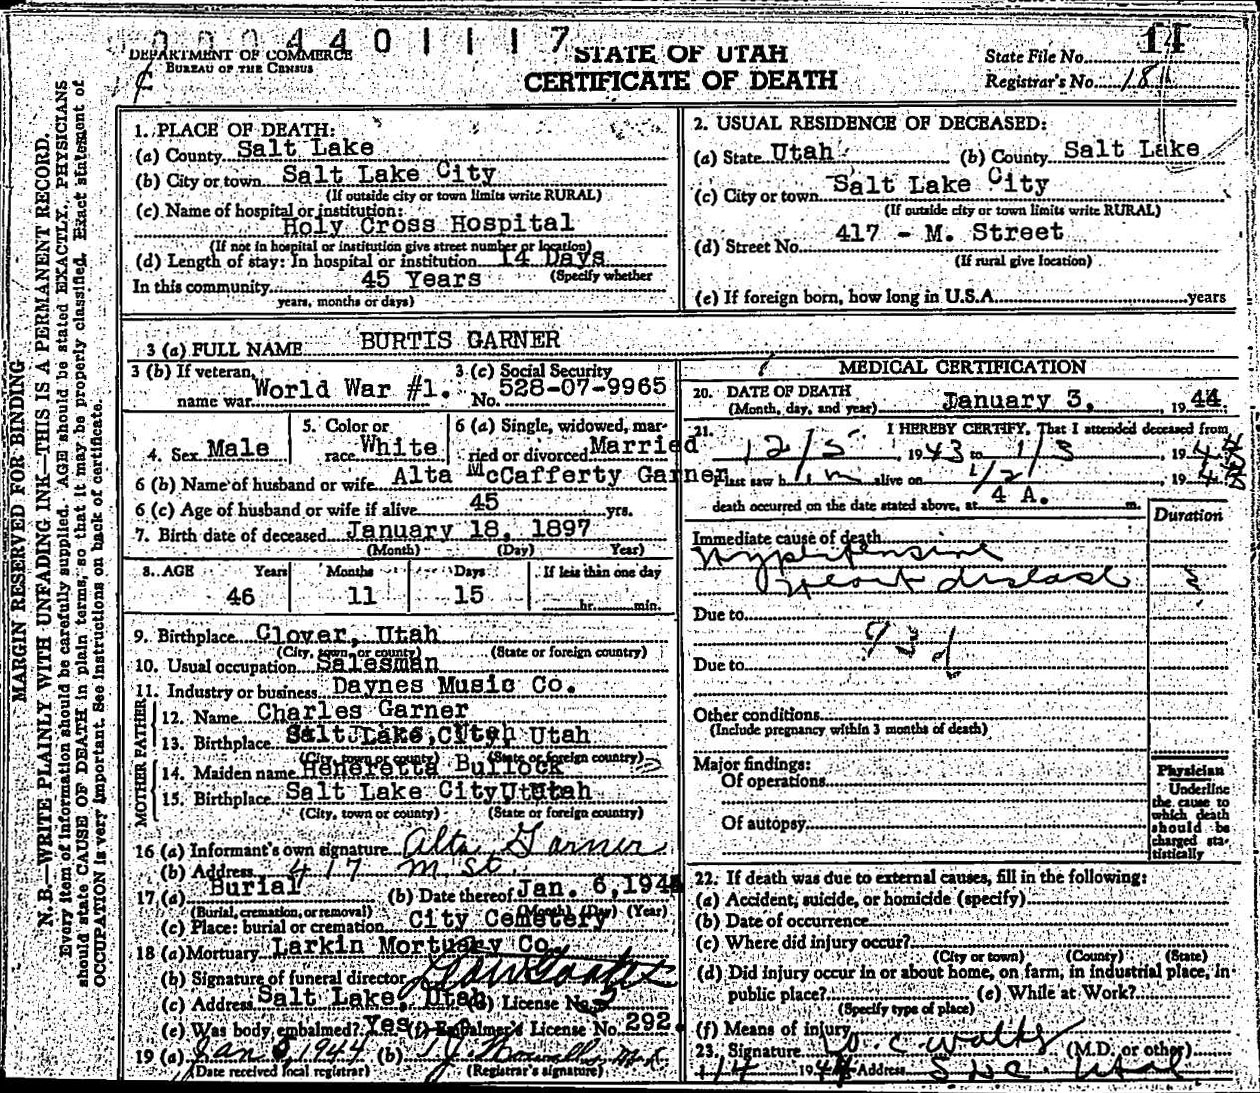 0004401117
DEPARTMENT OF COMMERCE
BUREAU OF THE CENSUS
STATE OF UTAH
CERTIFICATE OF DEATH
State File No. 14
Registrar's No.
MARGIN RESERVED FOR BINDING
N. B.—WRITE PLAINLY WITH UNFADING INK—THIS IS A PERMANENT RECORD.
Every item of information should be carefully supplied. AGE should be stated EXACTLY. PHYSICIANS
should state CAUSE OF DEATH in plain terms, so that it may be properly classified. Exact statement of
OCCUPATION is very important. See instructions on back of certificate.
1. PLACE OF DEATH:
(a) County Salt Lake
(b) City or town Salt Lake City
(If outside city or town limits write RURAL)
(c) Name of hospital or institution:
Holy Cross Hospital
(If not in hospital or institution give street number or location)
(d) Length of stay: In hospital or institution 14 Days
(Specify whether
In this community 45 Years
years, months or days)
2. USUAL RESIDENCE OF DECEASED:
(a) State Utah (b) County Salt Lake
(c) City or town Salt Lake City
(If outside city or town limits write RURAL)
(d) Street No. 417 - M. Street
(If rural give location)
(e) If foreign born, how long in U.S.A. years
3 (a) FULL NAME BURTIS GARNER
3 (b) If veteran, name war World War #1.
3 (c) Social Security No. 528-07-9965
4. Sex Male
5. Color or race White
6 (a) Single, widowed, married or divorced Married
6 (b) Name of husband or wife Alta McCafferty Garner
6 (c) Age of husband or wife if alive 45 yrs.
7. Birth date of deceased January 18, 1897
(Month) (Day) Year)
8. AGE Years Months Days If less than one day
46 11 15 hr. min.
9. Birthplace Clover, Utah
(City, town, or county) (State or foreign country)
10. Usual occupation Salesman
11. Industry or business Daynes Music Co.
FATHER
12. Name Charles Garner
13. Birthplace Salt Lake, City Utah
(City, town or county) (State or foreign country)
MOTHER
14. Maiden name Heneretta Bullock
15. Birthplace Salt Lake City Utah
(City, town or county) (State or foreign country)
16 (a) Informant's own signature Alta Garner
(b) Address 417 M. St.
17. (a) Burial (b) Date thereof Jan. 6, 1944
(Burial, cremation, or removal) (Month) (Day) (Year)
(c) Place: burial or cremation City Cemetery
18 (a) Mortuary Larkin Mortuary Co.
(b) Signature of funeral director
(c) Address Salt Lake, Utah (d) License No.
(e) Was body embalmed? Yes (f) Embalmer's License No. 292.
19 (a) Jan 5, 1944 (b)
(Date received local registrar) (Registrar's signature)
MEDICAL CERTIFICATION
20. DATE OF DEATH
(Month, day, and year) January 3, 1944
21. I HEREBY CERTIFY, That I attended deceased from
12/5 1943 to 1/3 1944
I last saw him alive on 1/2 1944
death occurred on the date stated above, at 4 A. m.
Duration
Immediate cause of death
Hypertensive
Heart disease
Due to
93d
Due to
Other conditions
(Include pregnancy within 3 months of death)
Major findings:
Of operations
Of autopsy
Physician
Underline
the cause to
which death
should be
charged sta-
tistically
22. If death was due to external causes, fill in the following:
(a) Accident, suicide, or homicide (specify)
(b) Date of occurrence
(c) Where did injury occur?
(City or town) (County) (State)
(d) Did injury occur in or about home, on farm, in industrial place, in
public place? (e) While at Work?
(Specify type of place)
(f) Means of injury
23. Signature (M.D. or other)
1/4 1944 Address SLC Utah